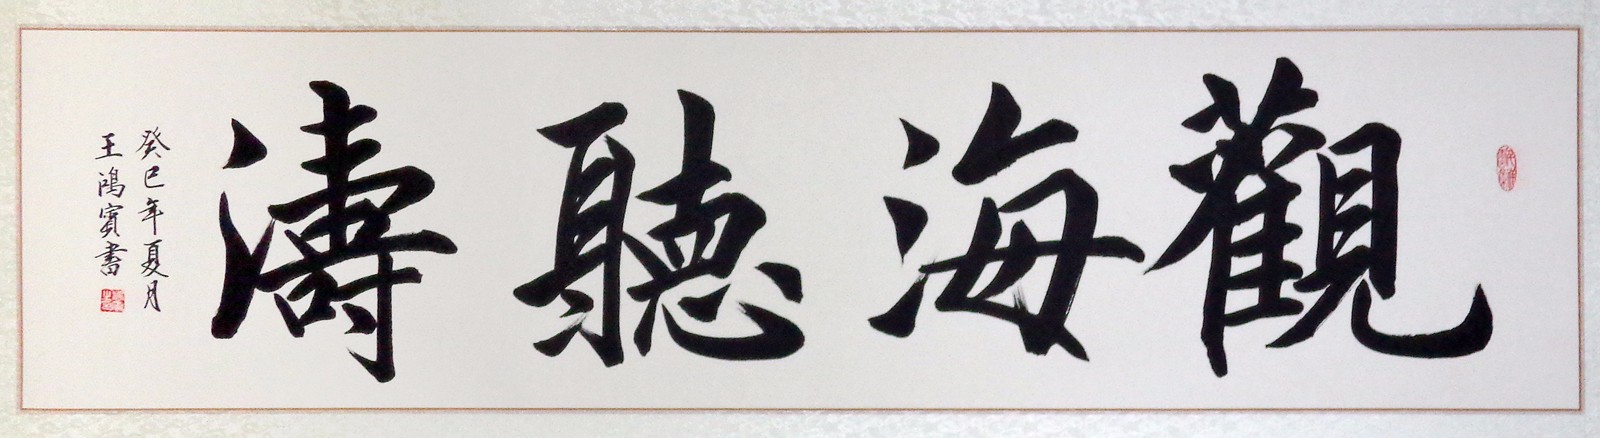 觀海聽濤
癸巳年夏月
王鴻賓書